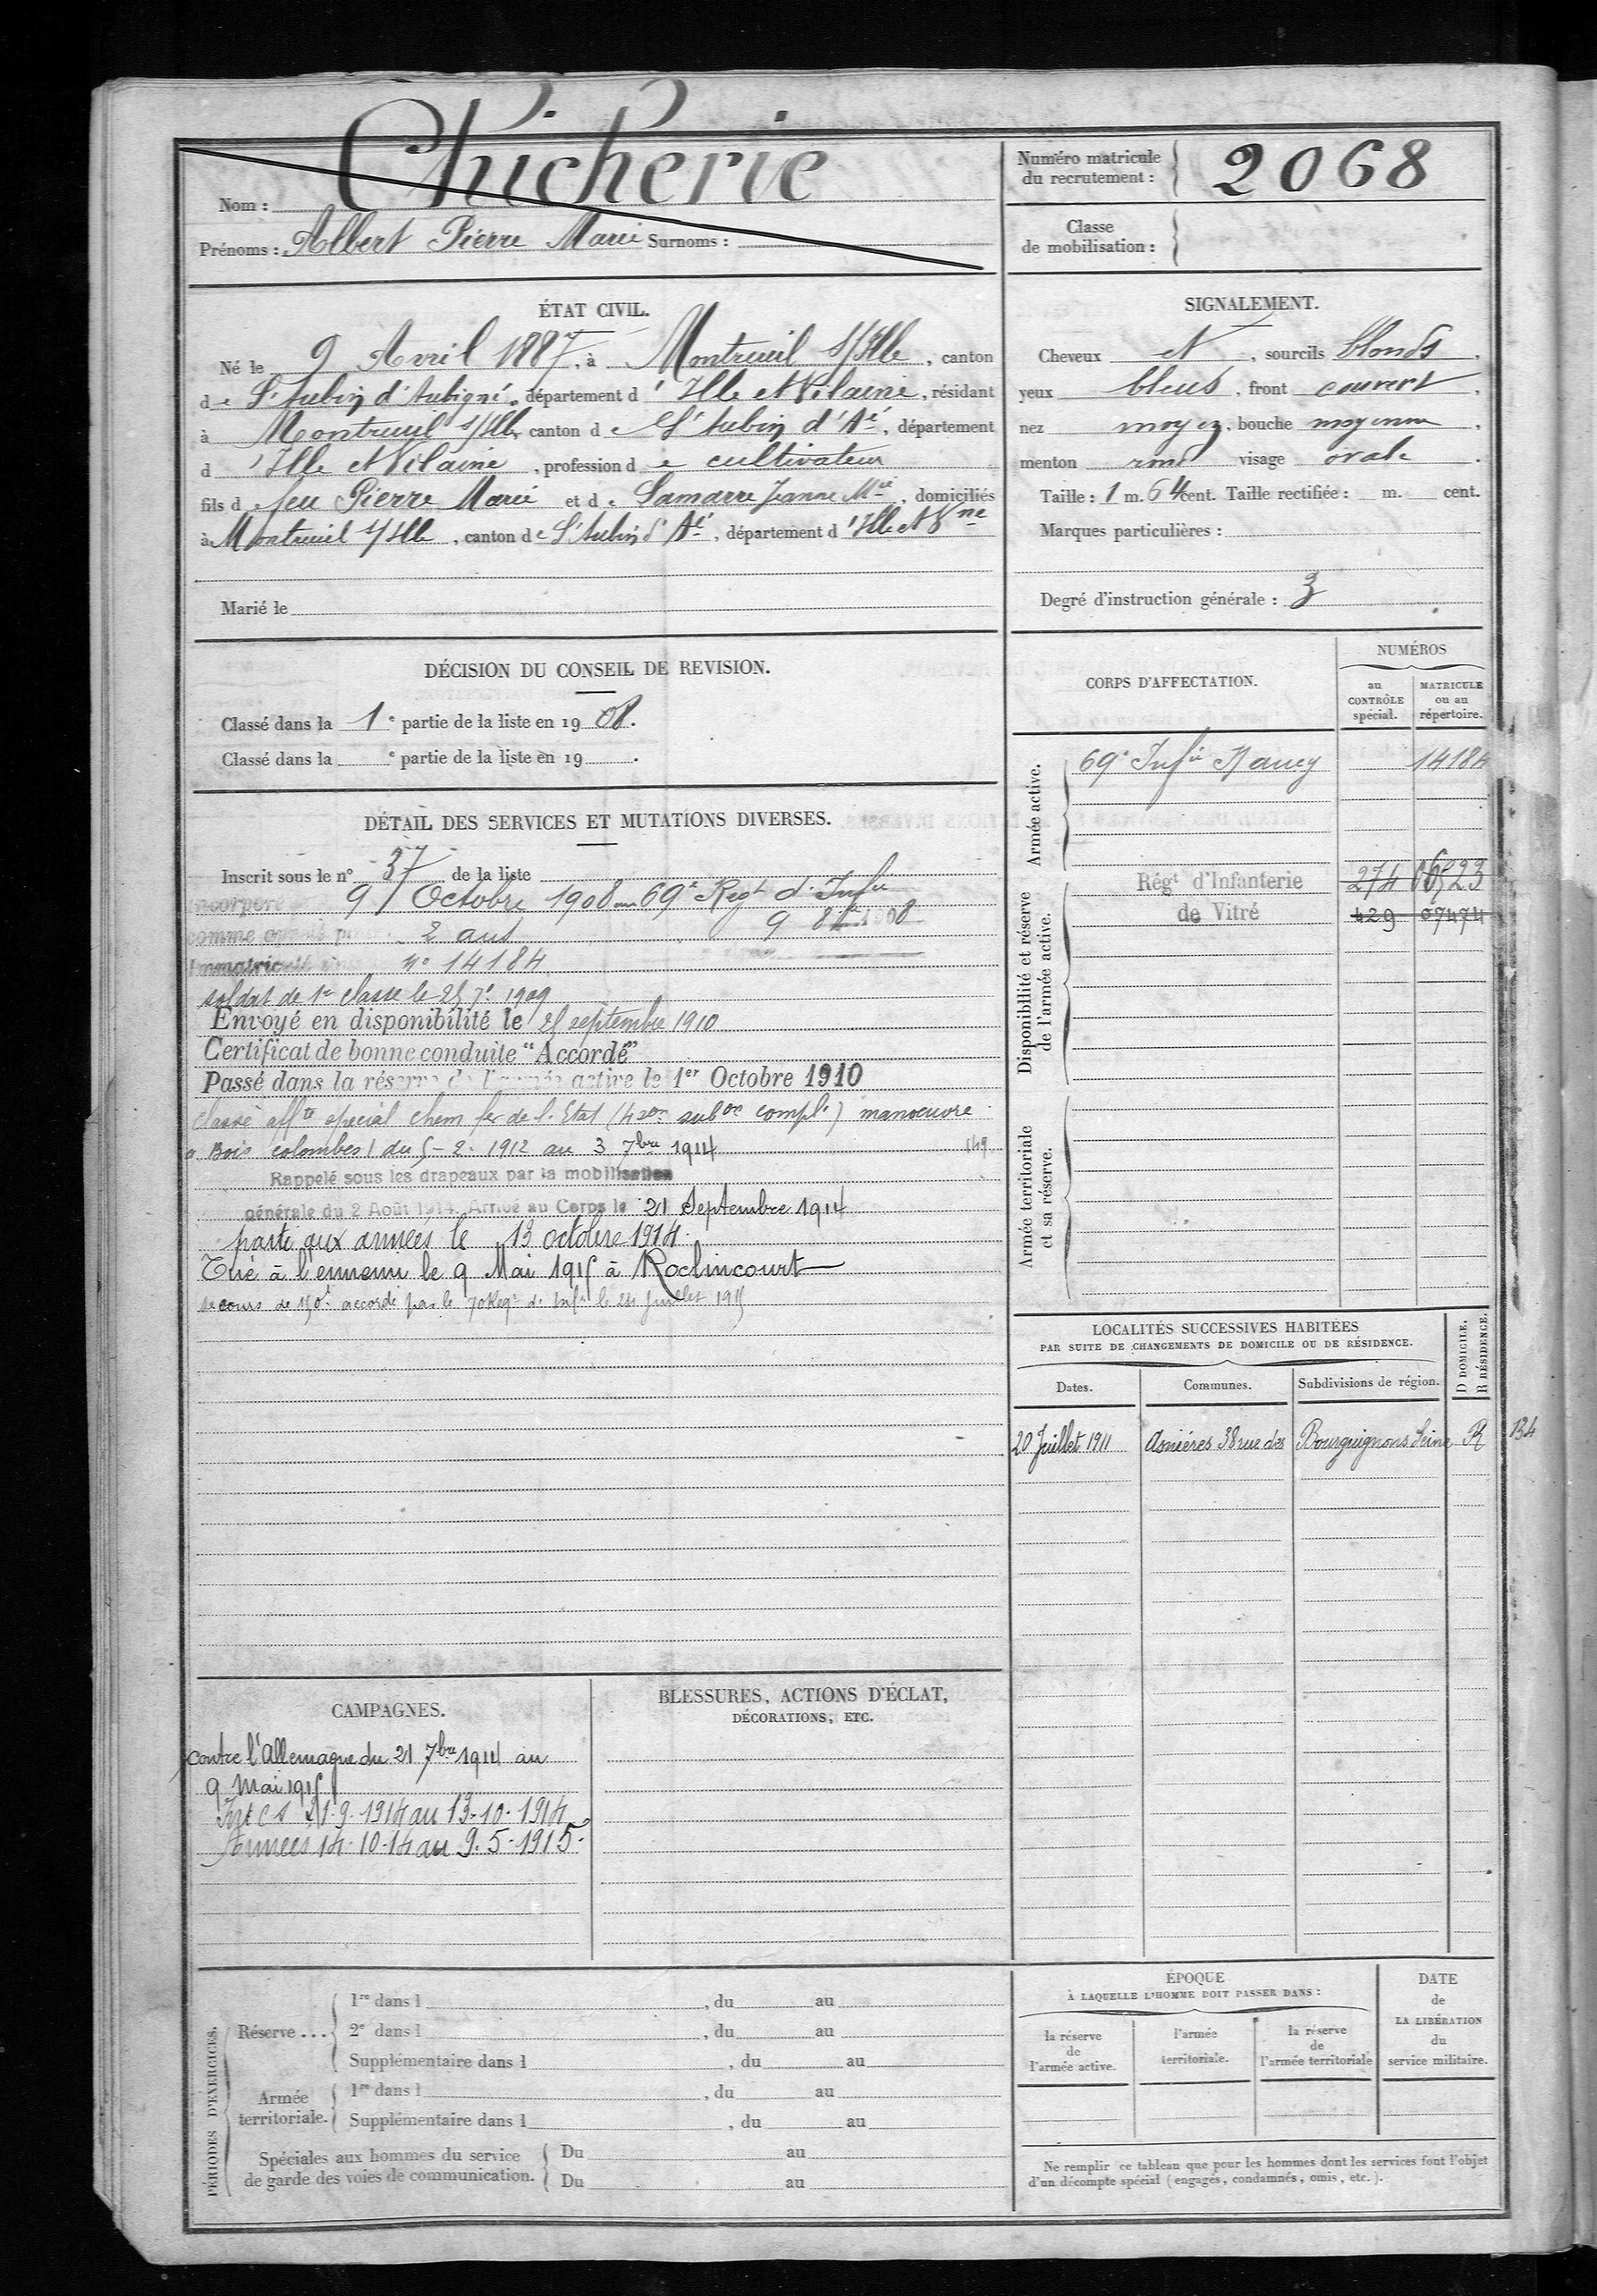 Nom : Chicherie
Prénoms : Albert Pierre Marie Surnoms :
Numéro matricule
du recrutement : 2068
Classe
de mobilisation :
ÉTAT CIVIL.
Né le 9 Avril 1887, à Montreuil s/Ille, canton
de St Aubin d'Aubigné, département d'Ille et Vilaine, résidant
à Montreuil s/Ille, canton de St Aubin d'Aé, département
d'Ille et Vilaine, profession de cultivateur
fils de feu Pierre Marie et de Lamarre Jeanne Mie, domiciliés
à Montreuil s/Ille, canton de St Aubin d'Aé, département d'Ille et Vne
Marié le
SIGNALEMENT.
Cheveux et, sourcils blonds,
yeux bleus, front couvert,
nez moyen, bouche moyenne,
menton rond visage ovale.
Taille : 1 m. 64 cent. Taille rectifiée : m. cent.
Marques particulières :
Degré d'instruction générale : 3
DÉCISION DU CONSEIL DE REVISION.
Classé dans la 1e partie de la liste en 1908.
Classé dans la e partie de la liste en 19 .
DÉTAIL DES SERVICES ET MUTATIONS DIVERSES.
Inscrit sous le n° 37 de la liste
Incorporé 9 Octobre 1908 au 69e Regt d'Infie
comme 2 ans 9 8bre 1908
Immatriculé n° 14184
soldat de 1re classe le 25 7e 1909
Envoyé en disponibilité le 25 septembre 1910
Certificat de bonne conduite "Accordé"
Passé dans la réserve de l'armée active le 1er Octobre 1910
Classé affté spécial chem fer de l'Etat (4 son subon compl.) manoeuvre
a Bois colombes) du 5-2-1912 au 3 7bre 1914 149
Rappelé sous les drapeaux par la mobilisation
générale du 2 Août 1914. Arrivé au Corps le 21 Septembre 1914
parti aux armées le 13 octobre 1914.
Tué à l'ennemi le 9 Mai 1915 à Roclincourt
secours de 150f accordé par le 70 Regt d'Infie le 24 Juillet 1915
CORPS D'AFFECTATION.
NUMÉROS
au
CONTRÔLE
spécial.
MATRICULE
ou au
répertoire.
Armée active.
69e Infie Nancy 14184
Disponibilité et réserve
de l'armée active.
Régt d'Infanterie 274 06523
de Vitré 429 07474
Armée territoriale
et sa réserve.
LOCALITÉS SUCCESSIVES HABITÉES
PAR SUITE DE CHANGEMENTS DE DOMICILE OU DE RÉSIDENCE.
D DOMICILE.
R RÉSIDENCE.
Dates. Communes. Subdivisions de région.
20 Juillet 1911 Asnières 38 rue des Bourguignons Seine R 134
CAMPAGNES.
contre l'Allemagne du 21 7bre 1914 au
9 Mai 1915
Int C S 21-9-1914 au 13-10-1914
Armées 14-10-14 au 9-5-1915.
BLESSURES, ACTIONS D'ÉCLAT,
DÉCORATIONS, ETC.
PÉRIODES D'EXERCICES.
Réserve ...
1re dans l , du au
2e dans l , du au
Supplémentaire dans l , du au
Armée
territoriale.
1re dans l , du au
Supplémentaire dans l , du au
Spéciales aux hommes du service
de garde des voies de communication.
Du au
Du au
ÉPOQUE
À LAQUELLE L'HOMME DOIT PASSER DANS :
la réserve
de
l'armée active.
l'armée
territoriale.
la réserve
de
l'armée territoriale
DATE
de
LA LIBÉRATION
du
service militaire.
Ne remplir ce tableau que pour les hommes dont les services font l'objet
d'un décompte spécial (engagés, condamnés, omis, etc.).